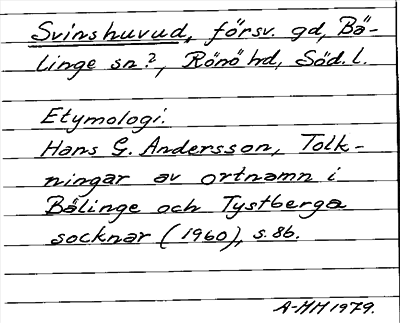 Svinshuvud, försv. gd, Bä-
linge sn?, Rönö hd, Söd. l.
Etymologi:
Hans G. Andersson, Tolk-
ningar av ortnamn i
Bälinge och Tystberga
socknar (1960), s. 86.
A-MH 1979.